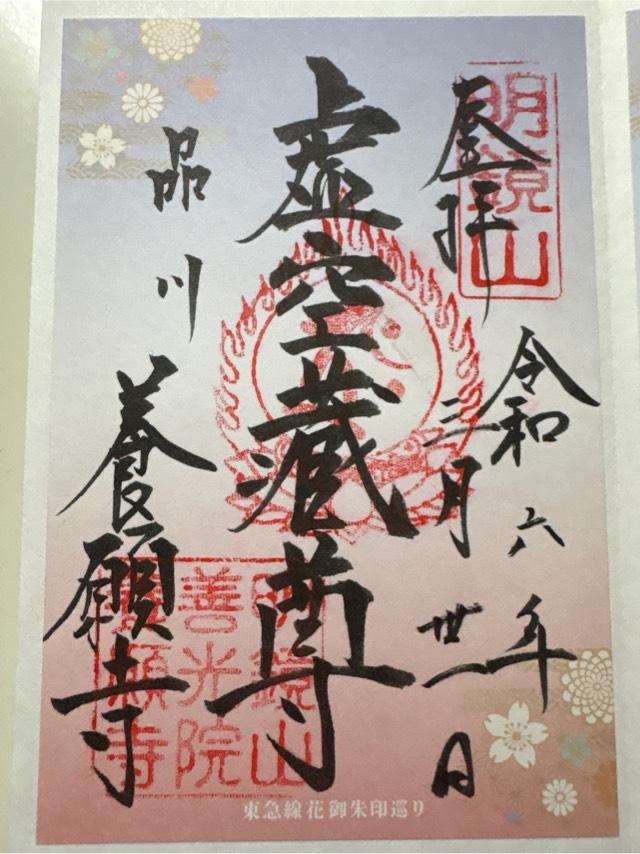 登拝
明鏡山
令和六年
三月卅一日
虚空蔵尊
品川
養願寺
明鏡山
善光院
養願寺
東急線花御朱印巡り